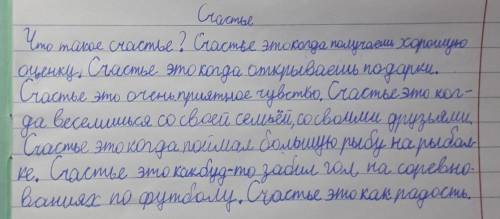 Счастье
Что такое счастье? Счастье это когда получаешь хорошую
оценку. Счастье это когда открываешь подарки.
Счастье это очень приятное чувство. Счастье это ког-
да веселишься со своей семьёй, со своими друзьями.
Счастье это когда поймал большую рыбу на рыбал-
ке. Счастье это как буд-то забил гол на соревно-
ваниях по футболу. Счастье это как радость.